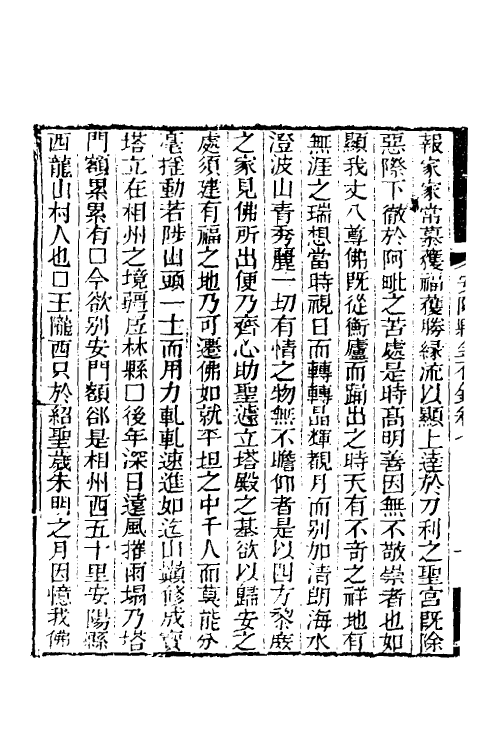 報家家常慕獲福獲勝緣流以顯上達於刀利之聖宮既除
惡際下徹於阿毗之苦處是時高明善因無不敬崇者也如
顯我丈八尊佛既從衡廬而踊出之時天有不奇之祥地有
無涯之瑞想當時視日而轉轉晶輝觀月而別加清朗海水
澄波山青秀麗一切有情之物無不瞻仰者是以四方黎庶
之家見佛所出便乃齊心助聖遽立塔殿之基欲以歸安之
處須建有福之地乃可遷佛如就平坦之中千人而莫能分
毫摧動若陟山頭一士而用力軋軋速進如迄山巔修成寶
塔立在相州之境彊屆林縣囗後年深日遠風摧雨塌乃塔
門額累累有囗今欲別安門額郤是相州西五十里安陽縣
西龍山村人也囗王隴西只於紹聖歲朱明之月因憶我佛
安陽縣金石錄卷七